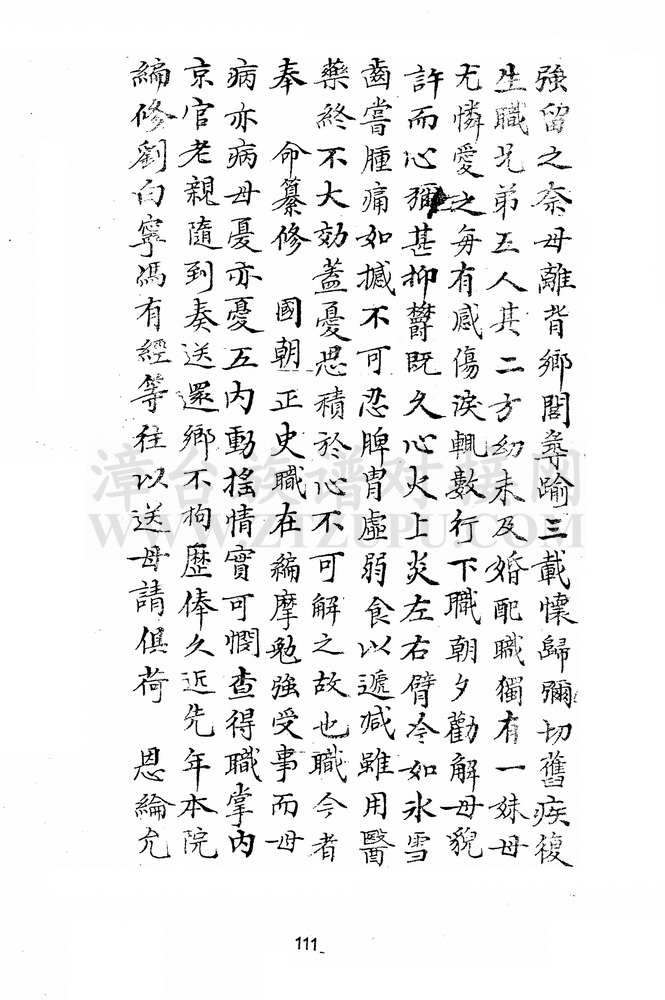 強留之奈母離背鄉閭葬踰三載懷歸彌切舊疾復
生職兄弟五人其二方幼未及婚配職獨有一妹母
尤憐愛之每有感傷淚輒數行下職朝夕勸解母貎
許而心彌甚抑欝既久心火上炎左右臂冷如氷雪
齒嘗腫痛如撼不可忍脾胃虛弱食以遞减雖用醫
藥終不大効蓋憂思積於心不可解之故也職今者
奉 命纂修 國朝正史職在編摩勉強受事而母
病亦病母憂亦憂五内動搖情實可憫查得職掌内
京官老親隨到奏送還鄉不拘歷俸久近先年本院
編修劉白寧馮有經等往以送母請俱荷 恩綸允
漳台族谱对接网
WWW.ZTZUPU.COM
111